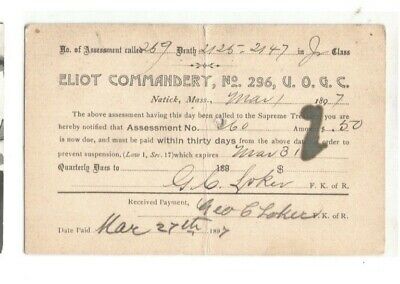 No. of Assessment called 259 Death 2125-2147 in Jr Class
ELIOT COMMANDERY, No. 296, U. O. G. C.
Natick, Mass., Mar 1 1897
The above assessment having this day been called to the Supreme Treasury you are
hereby notified that Assessment No. 260 Amount $ .50
is now due, and must be paid within thirty days from the above date, in order to
prevent suspension, (Law 1, Sec. 17) which expires Mar 31
Quarterly Dues to 189 $
G. C. Loker F. K. of R.
Received Payment, Geo C Loker F. K. of R.
Date Paid Mar 27th 1897